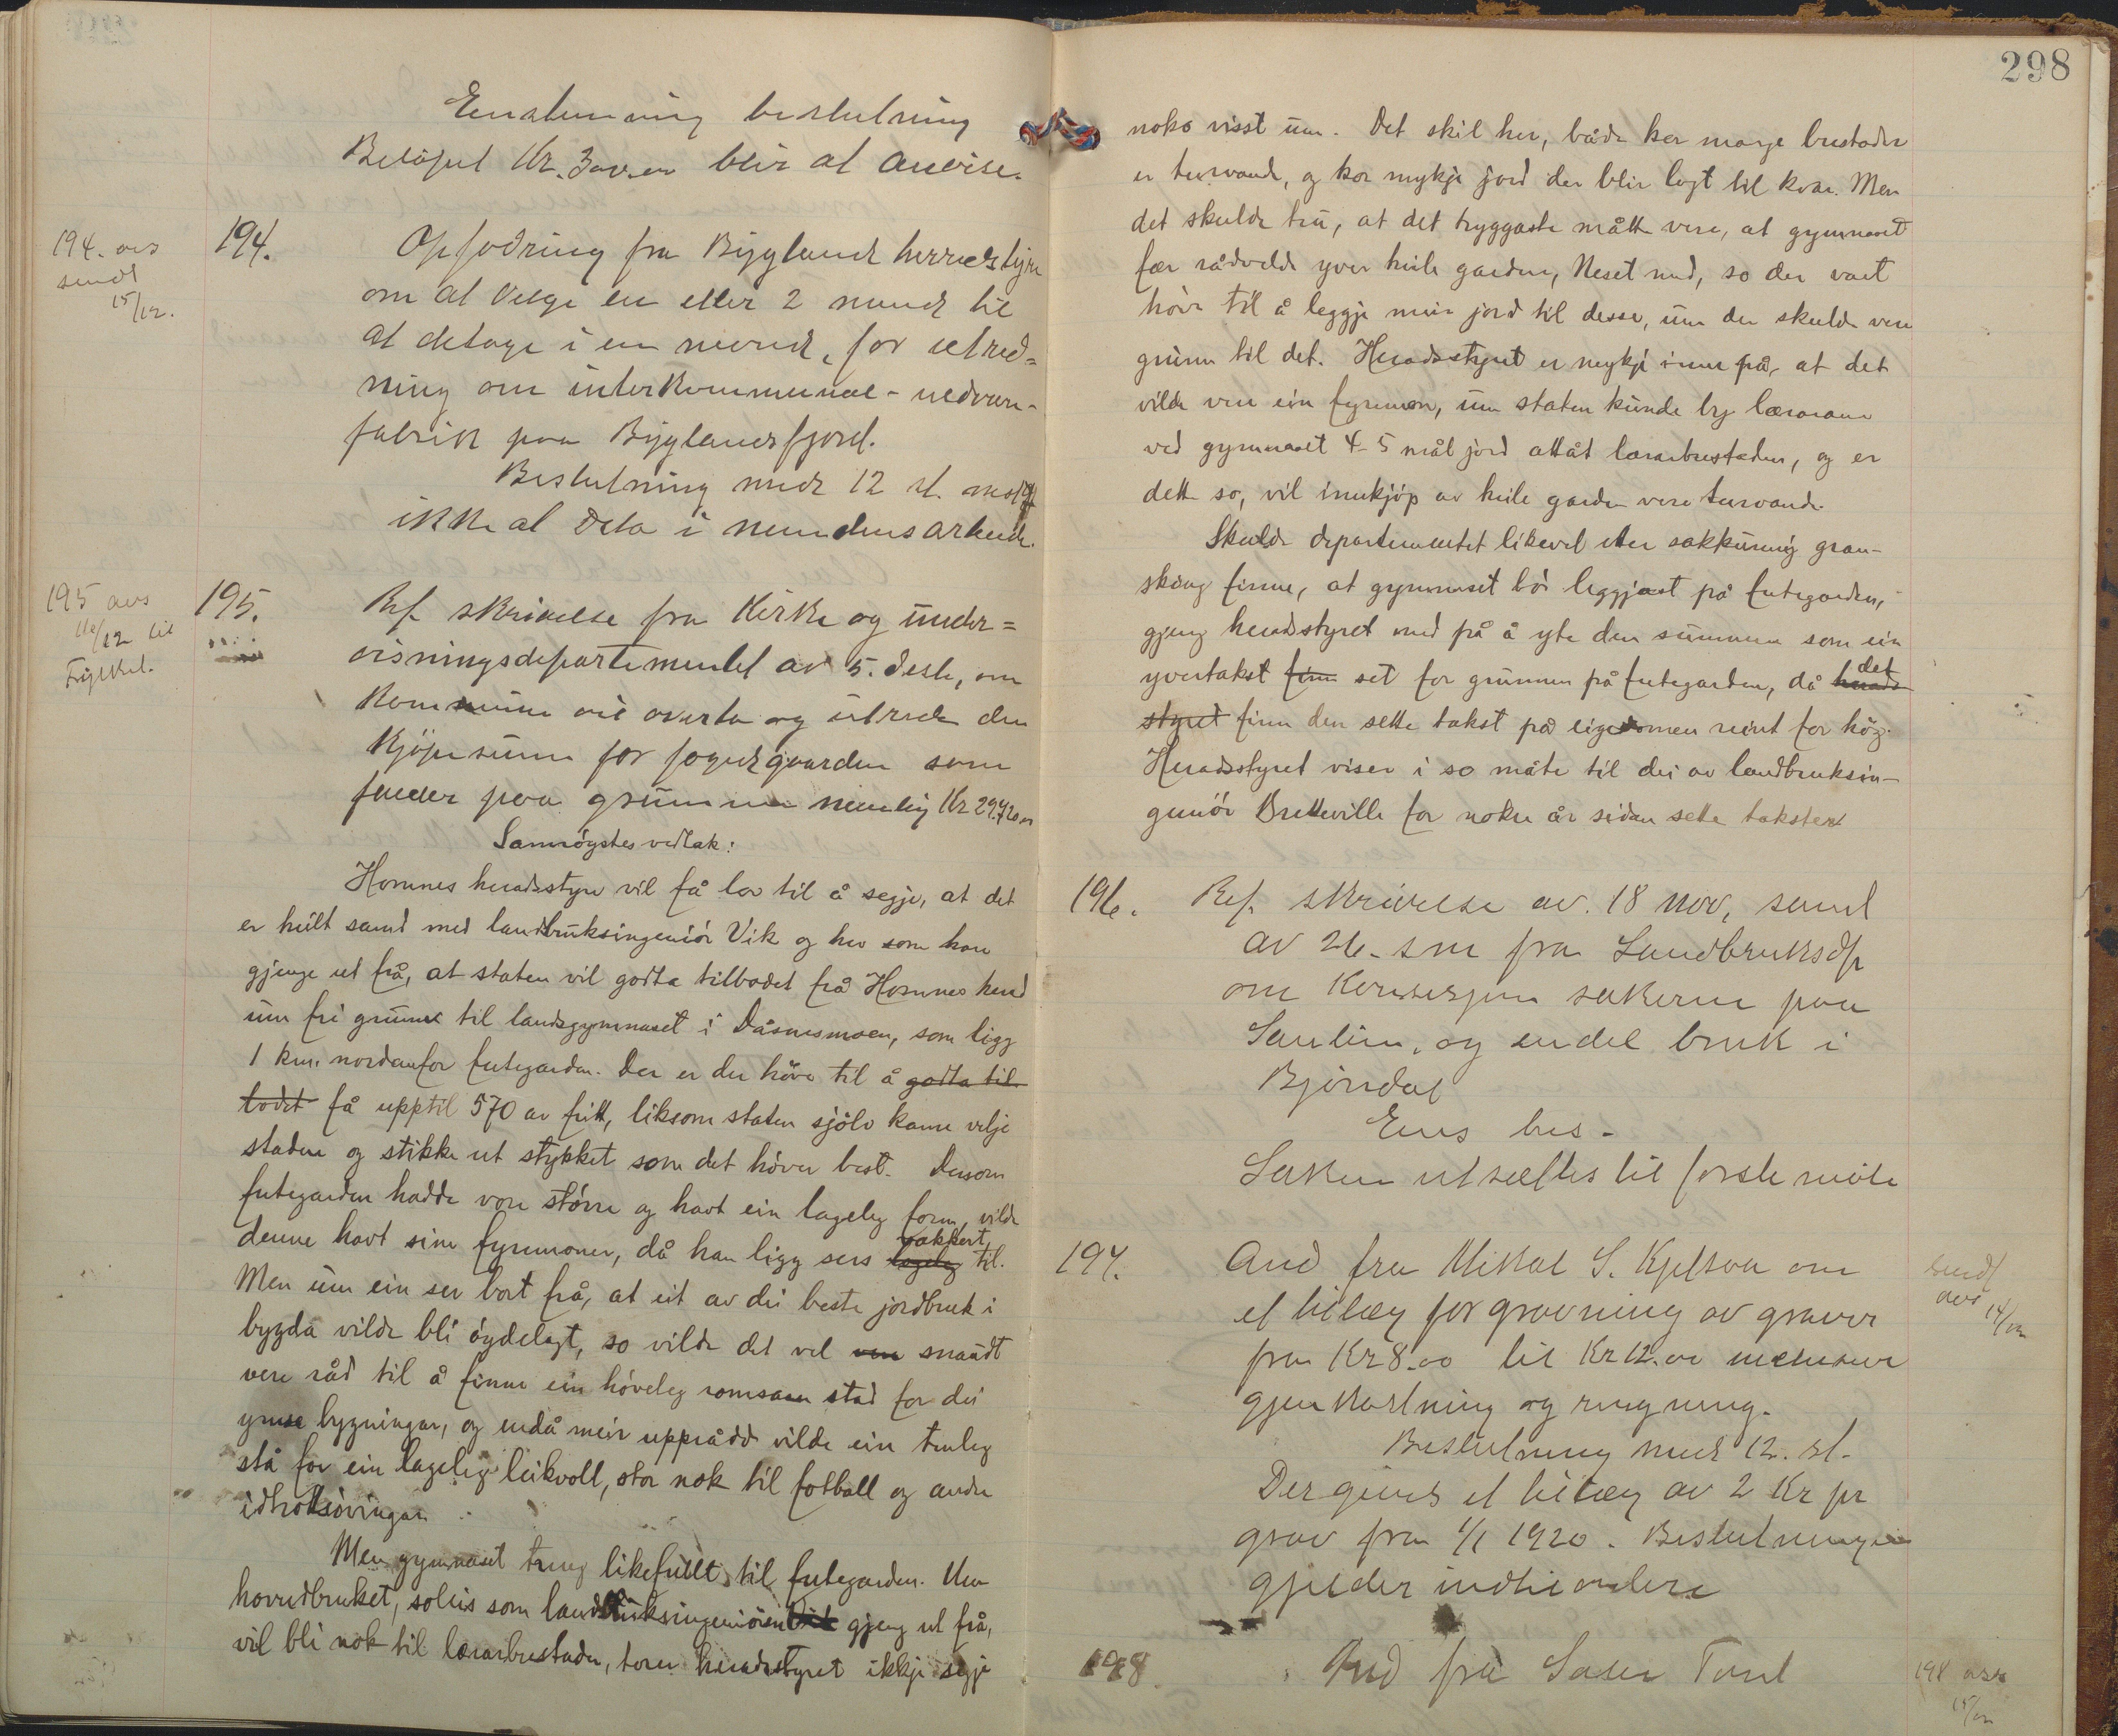 Enstemmig beslutning
Beløpet Kr. blir at anvise.
194. avs
sendt
15/12.
194. Opfodring fra Bygland herredstyre
om at velge en eller 2 mend til
at deltage i en nevnd, for utred=
ning om interkommunal - uldvare-
fabrik paa Byglandsfjord.
Beslutning med 12 st. mot
ikke at delta i nemndens arbeide.
195 avs
16/12 til
Fylket.
195. Ref. skrivelse fra Kirke og under=
visningsdepartementet av 5. desbr, om
Kommunen vil overta og utrede den
Kjøpesum for fogedgaarden som
falder paa grunnen nemlig Kr 29720.00
Samrøystes vedtak:
Hornnes heradsstyre vil få lov til å segje, at det
er heilt samd med landbruksingeniør Vik og her som han
gjenge ut frå, at staten vil godta tilbodet frå Hornnes herad
um fri grunn til landsgymnaset i Dåsnesmoen, som ligg
1 km. nordanfor futegarden. Der er der høve til å godta til-
bodet få upptil 570 ar fritt, liksom staten sjølv kann velje
staden og stikke ut stykket som det høver best. Dersom
futegarden hadde vore større og havt ein lageleg form, vilde
denne havt sine fyremoner, då han ligg sers lageleg vakkert til.
Men um ein ser bort frå, at eit av dei beste jordbruk i
bygda vilde bli øydelagt, so vilde det vel vera snaudt
vere råd til å finne ein høveleg romsam stad for dei
ymse bygningar, og endå meir upprådd vilde ein truleg
stå for ein lageleg leikvoll, stor nok til fotball og andre
idrottsøvingar.
Men gymnaset treng likefullt til futegarden. Um
hovudbruket, soleis som landbruksingeniøren Vik gjeng ut frå,
vil bli nok til lærarbustader, torer heradsstyret ikkje segje
298
noko visst um. Det skil her, både kor mange bustader
er turvande, og kor mykje jord der blir lagt til kvar. Men
det skulde tru, at det tryggaste måtte vere, at gymnaset
fær rådvelde yver heile garden, Neset med, so der vart
høve til å leggje meir jord til desse, um der skulde vere
grunn til det. Heradsstyret er mykje inne på, at det
vilde vere ein fyremon, um staten kunde by lærarane
ved gymnaset 4-5 mål jord attåt lærarbustaden, og er
dette so, vil innkjøp av heile garden vere turvande.
Skulde departementet likevel etter sakkunnig gran-
sking finne, at gymnaset bør leggjast på futegarden,
gjeng heradsstyret med på å yte den summen som ein
yvertakst finn set for grunnen på futegarden, då herads- det
styret finn den sette takst på eigedomen reint for høg.
Heradsstyret viser i so måte til dei av landbruksin-
geniør Bretteville for nokre år sidan sette takster
196. Ref. skrivelse av 18 nov, samt
av 26. s.m fra Landbruksdp
om Konsesjons sakerne paa
og endel bruk i
Bjørndal
Ens bes.
Saken utsættes til første møte
197. And fra Mikkal S. Kjetsaa om
et tillæg for gravning av graver
fra Kr 8.00 til Kr 12.00 inclusive
gjenkastning og ringning.
Beslutning med 12. st.
Der gives et tillæg av 2 Kr pr
grav fra 1/1 1920. Beslutningen
gjælder indtil videre
sendt
avs 14/12
198. And frå
198 avs
15/12